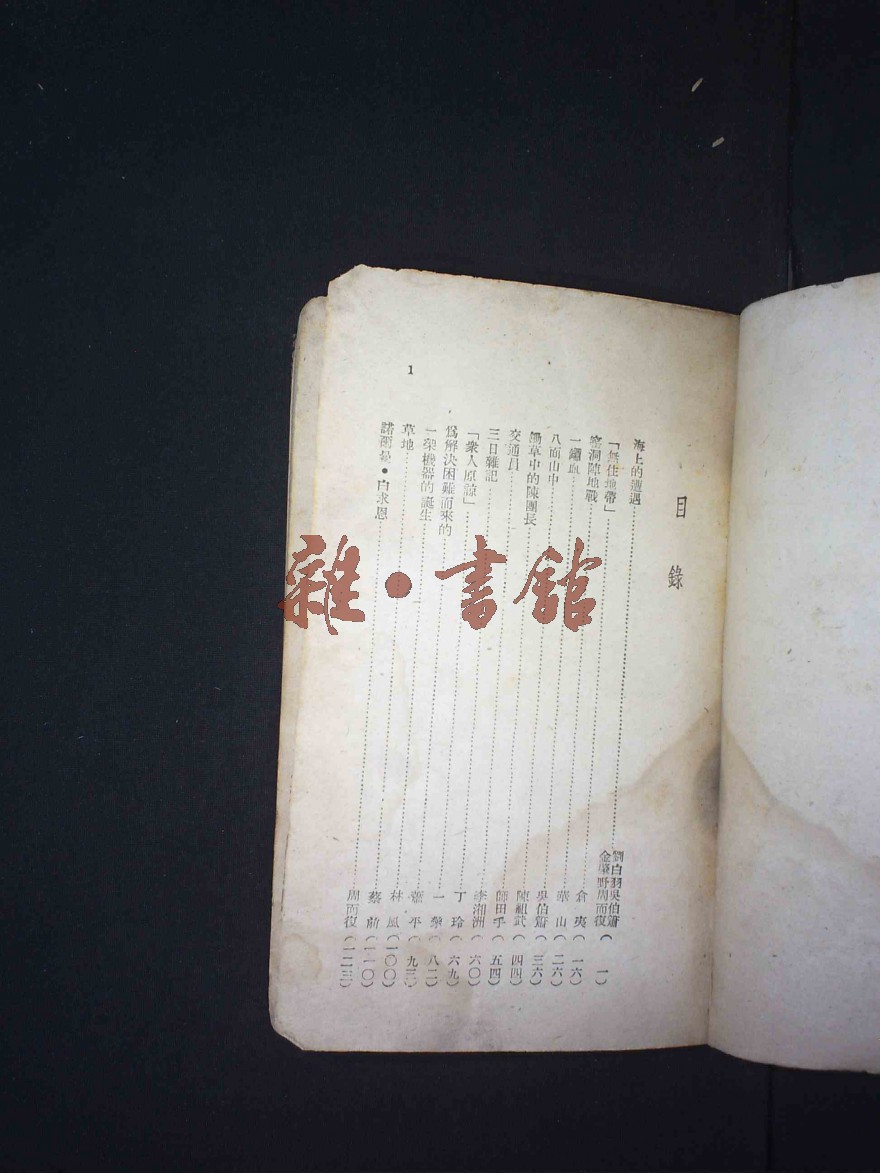 目錄
海上的遭遇……劉白羽吳伯簫
金肇野周而復(一)
「無住地帶」……倉夷(一六)
窰洞陣地戰……華山(二六)
一罎血……吳伯簫(三六)
八面山中……陳祖武(四四)
鋤草中的陳團長……師田手(五四)
交通員……李湘洲(六〇)
三日雜記……丁玲(六九)
「衆人原諒」……一(八二)
爲解決困難而來的……葉平(九三)
一架機器的誕生……林風(一〇〇)
草地……蔡前(一一〇)
諾爾曼•白求恩……周而復(一二三)
1
雜•書館